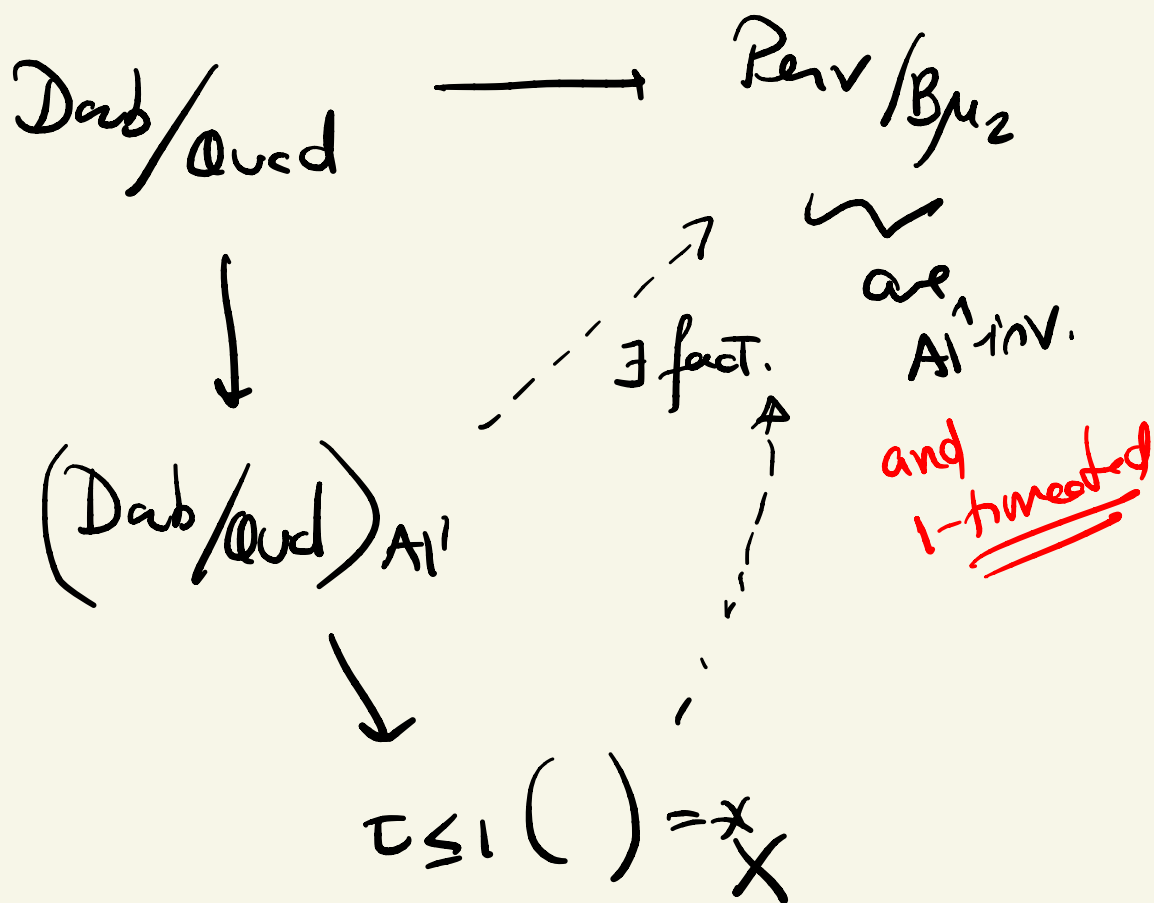 Darb/Quad → Perv/Bμ₂
are A¹-inv.
∃ fact.
and
1-truncated
(Darb/Quad)_A¹
τ≤1 ( ) = *